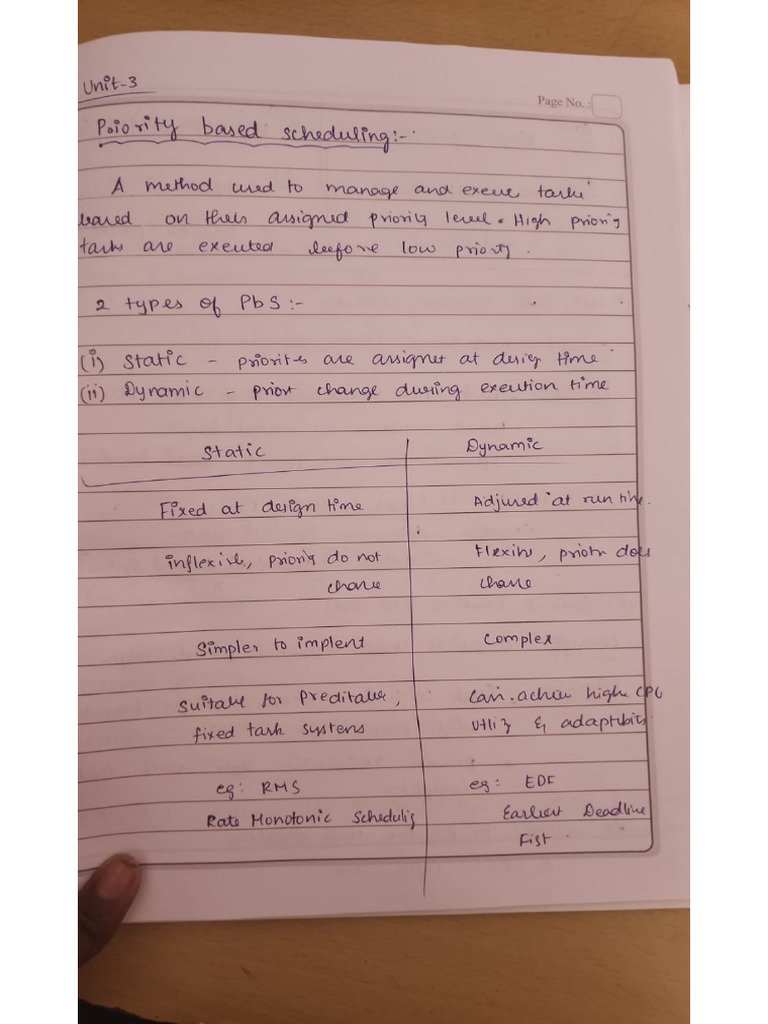 Unit-3
Page No. :
Priority based scheduling:-
A method used to manage and exeue tasks
based on their assigned priority level. High priority
tasks are exeuted beefore low priority.
2 types of PbS:-
(i) Static - priorites are assignet at desig time
(ii) Dynamic - priort change during exeution time
Static Dynamic
Fixed at design time Adjured at run time.
inflexive, priority do not Flexive, priotn does
chane chane
Simpler to implent Complex
Suitable for preditable, Can achieve highe CPU
fixed task systems utliz & adaptibity
eg: RMS eg: EDF
Rate Monotonic Schedulig Earliest Deadline
Fist